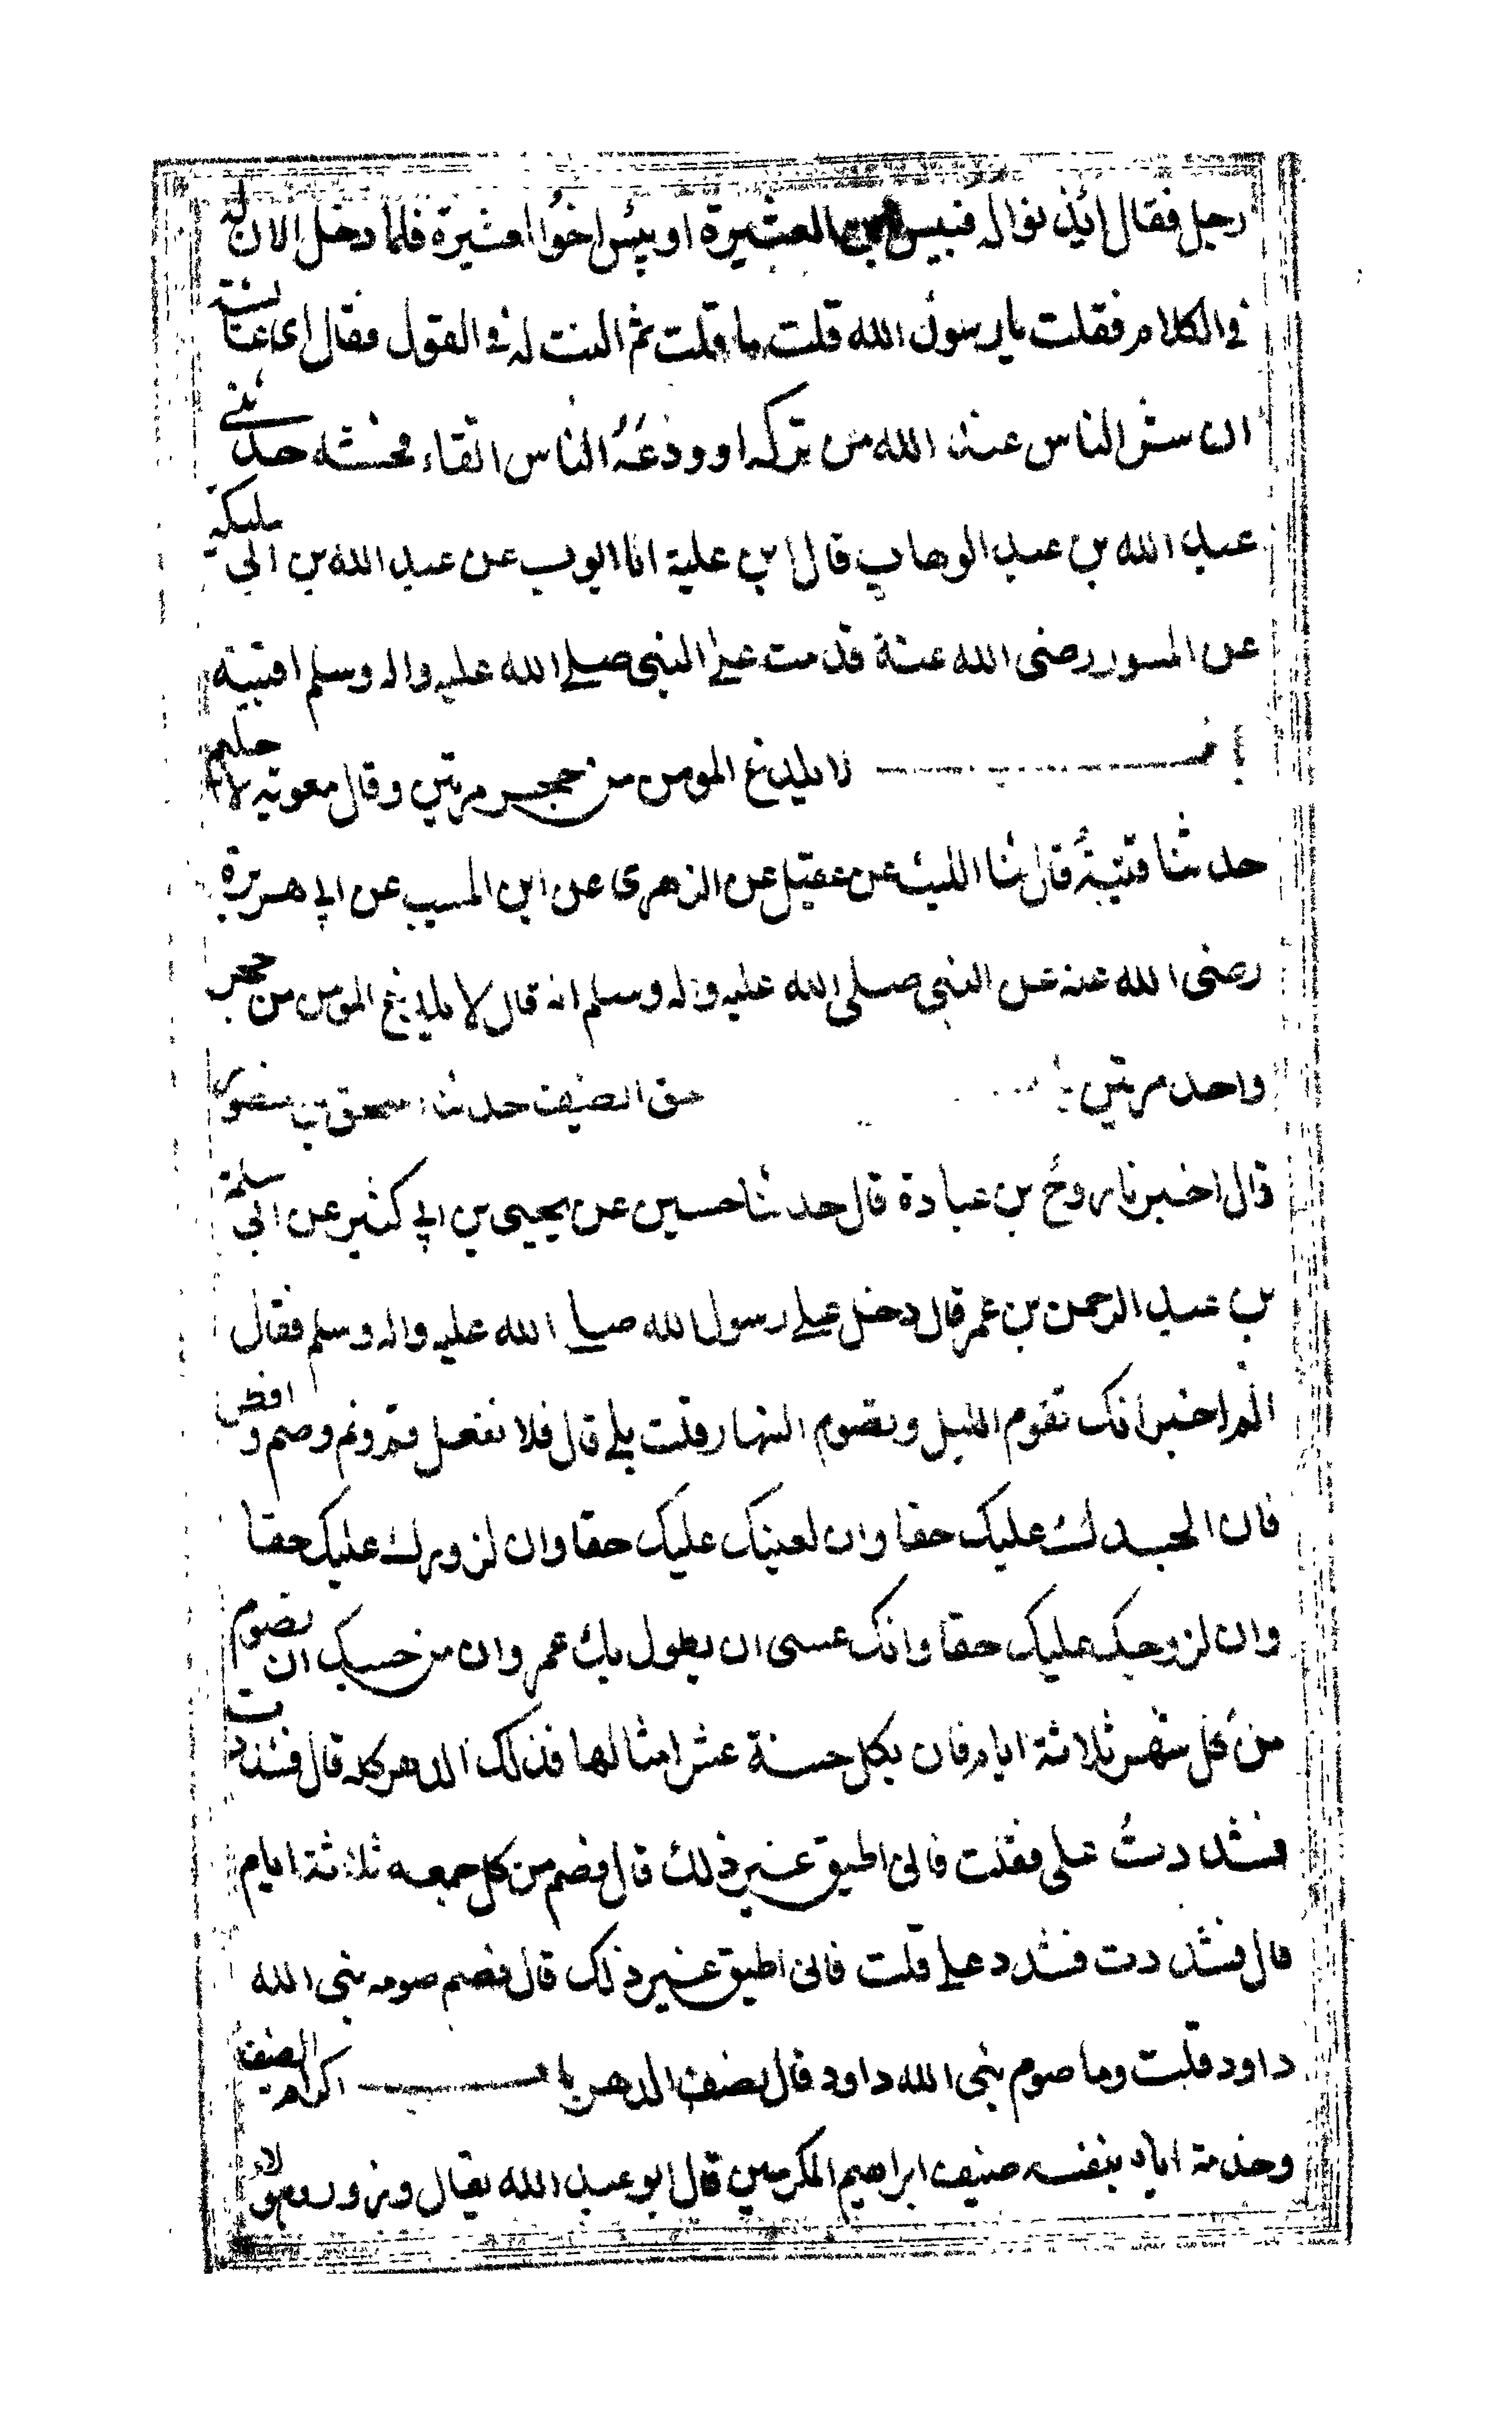 رجل فقال ائذنوا له فبيس ابن العشيرة او بئس اخوا العشيرة فلما دخل الان له
في الكلام فقلت يا رسول الله قلت ما قلت ثم النت له في القول فقال اى عائشة
ان شر الناس عند الله من تركه او ودعه الناس اتقاء فحشه حدثني
عبد الله بن عبد الوهاب قال ابن علية انا ايوب عن عبد الله بن ابي مليكه
عن المسور رضى الله عنة قدمت على النبي صلى الله عليه واله وسلم اقبية
باب لا يلدغ المومن من جحر مرتين وقال معوية لا حليم
حدثنا قتيبة قال ثنا الليث عن عقيل عن الزهرى عن ابن المسيب عن ابي هريرة
رضى الله عنه عن النبي صلى الله عليه واله وسلم انه قال لا يلدغ المومن من جحر
واحد مرتين باب حق الضيف حدثنا اسحق بن منصور
قال اخبرنا روح بن عبادة قال حدثنا حسين عن يحيى بن ابي كثير عن ابي سلمة
بن عبد الرحمن بن عمر قال دخل على رسول الله صلى الله عليه واله وسلم فقال
الم اخبر انك تقوم الليل وتصوم النهار قلت بلى قال فلا تفعل قم ونم وصم وافطر
فان لجسدك عليك حقا وان لعينك عليك حقا وان لزورك عليك حقا
وان لزوجك عليك حقا وانك عسى ان يطول بك عمر وان من حسبك ان تصوم
من كل شهر ثلاثة ايام فان بكل حسنة عشر امثالها فذلك الدهر كله قال فشددت
فشددت على فقلت فانى اطيق غير ذلك قال فصم من كل جمعه ثلاثة ايام
قال فشددت فشدد على قلت فانى اطيق غير ذلك قال فصم صومه نبى الله
داود قلت وما صوم نبى الله داود قال نصف الدهر باب اكرام الضيف
وخدمة اياه بنفسه ضيف ابراهيم المكرمين قال ابو عبد الله يقال وزور وهولاء